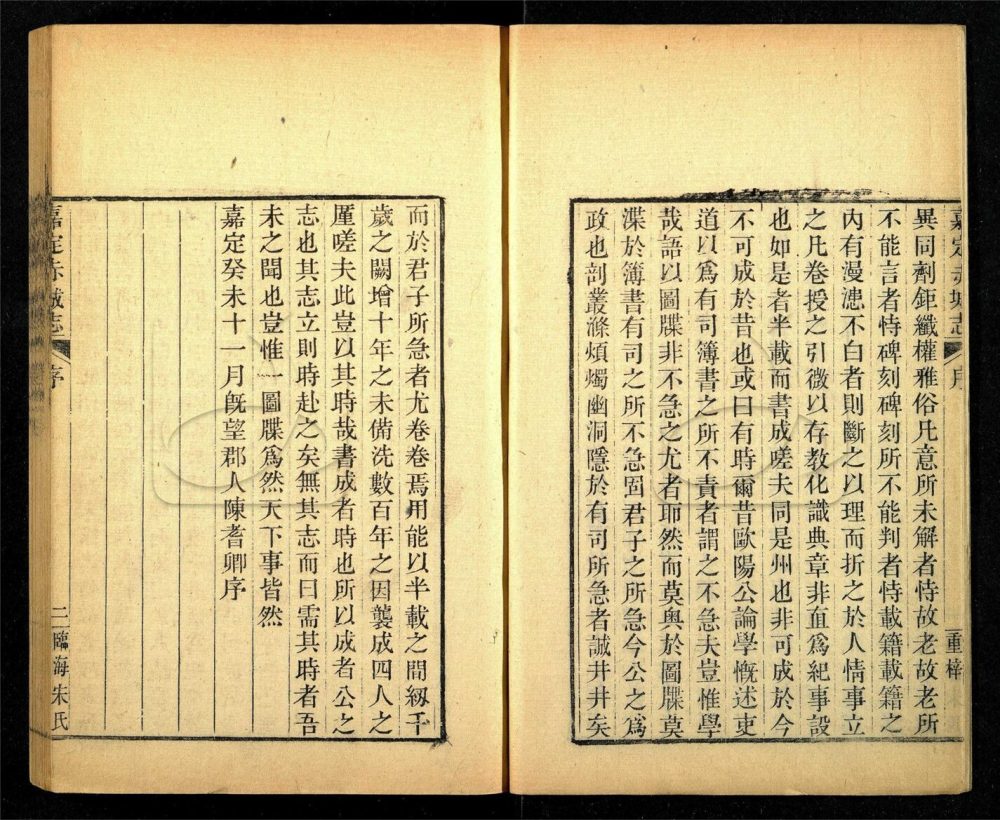 嘉定赤城志 序 重梓
異同劑鉅纖權雅俗凡意所未解者恃故老故老所
不能言者恃碑刻碑刻所不能判者恃載籍載籍之
內有漫漶不白者則斷之以理而折之於人情事立
之凡卷授之引微以存敎化識典章非直爲紀事設
也如是者半載而書成嗟夫同是州也非可成於今
不可成於昔也或曰有時爾昔歐陽公論學慨述吏
道以爲有司簿書之所不責者謂之不急夫豈惟學
哉語以圖牒非不急之尤者耶然而莫奥於圖牒莫
渫於簿書有司之所不急固君子之所急今公之爲
政也剖叢滌煩燭幽洞隱於有司所急者誠井井矣
而於君子所急者尤卷卷焉用能以半載之間紉千
歲之闕增十年之未備洗數百年之因襲成四人之
厪嗟夫此豈以其時哉書成者時也所以成者公之
志也其志立則時赴之矣無其志而曰需其時者吾
未之聞也豈惟一圖牒爲然天下事皆然
嘉定癸未十一月旣望郡人陳耆卿序
嘉定赤城志 序 二 臨海朱氏